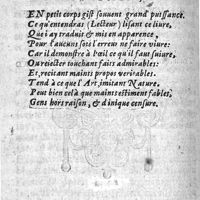 EN petit corps gist souuent grand puissance.
Ce qu'entendras (Lecteur) lisant ce liure,
Que i'ay traduit & mis en apparence,
Pour t'aucunsfois l'erreur ne faire viure:
Car il demonstre à l'œil ce qu'il faut suiure,
Ou reietter touchant faits admirables:
Et, recitant maints propos veritables.
Tend à ce que l'Art imitant Nature.
Peut bien cela que maints estiment fables,
Gens hors raison, & d'inique censure.